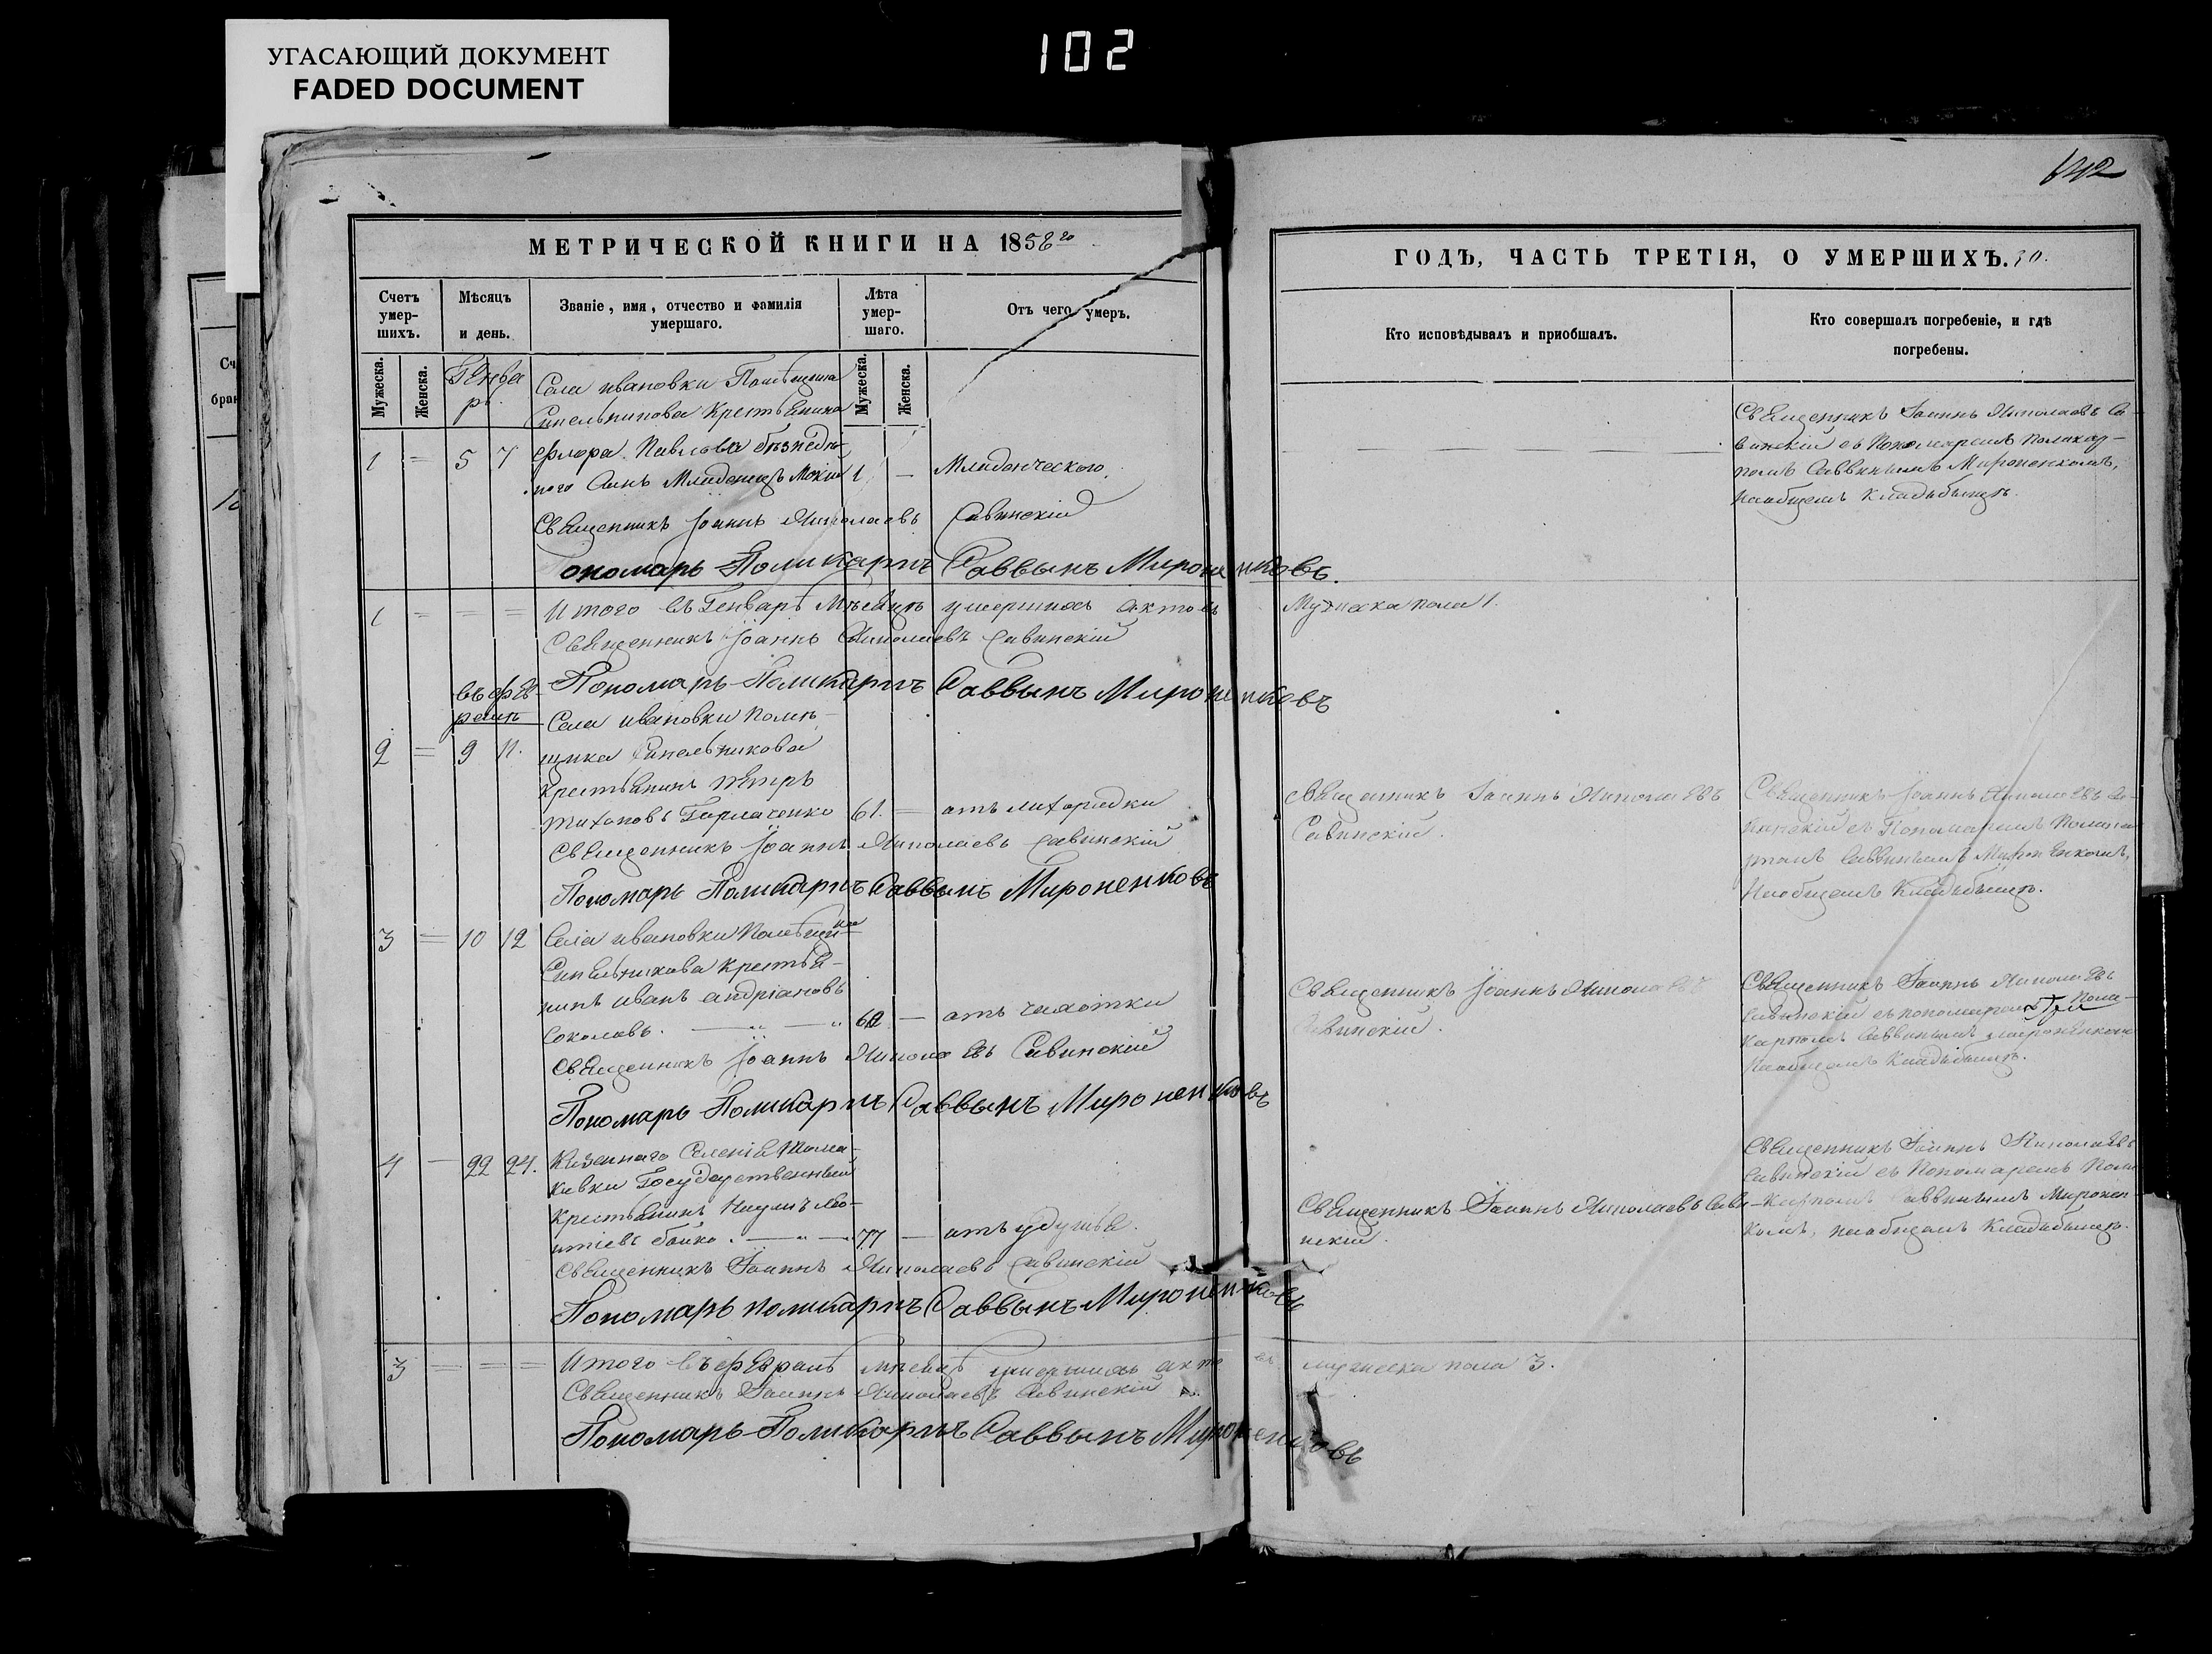 УГАСАЮЩИЙ ДОКУМЕНТ
FADED DOCUMENT
102
142
МЕТРИЧЕСКОЙ КНИГИ НА 1858го
ГОДЪ, ЧАСТЬ ТРЕТІЯ, О УМЕРШИХЪ.
Счетъ умер-шихъ.
Мѣсяцъ и день.
Званіе, имя, отчество и фамилія умершаго.
Лѣта умер-шаго.
Отъ чего умеръ.
Кто исповѣдывалъ и пріобщалъ.
Кто совершалъ погребеніе, и гдѣ погребены.
Мужеска.
Женска.
Генва
рь.
Мужеска.
Женска.
Села ивановки Помѣщика
Синельникова Крестьянина
1 = 5 7 Флора Павлова
Сынъ Младенецъ Мокій 1 — Младенческаго.
Священникъ Іоаннъ Николаевъ Савинскій
Пономарь Поликарпъ Саввынъ Мироненковъ.
Священникъ Іоаннъ Николаевъ Са-
винскій съ Пономаремъ Поликар-
помъ Саввинымъ Мироненкомъ,
наобщемъ кладьбищѣ.
1 = = = Итого въ Генварѣ Мѣсяцѣ умершихъ актовъ Мужеска пола 1.
Священникъ Іоаннъ Николаевъ Савинскій
Пономарь Поликарпъ Саввынъ Мироненковъ
въ фев-
ралѣ
Села ивановки помѣ-
2 = 9 11. щика Синельникова
Крестьянинъ Петръ
тихоновъ Горлаченко 61. = отъ лихорадки
Священникъ Іоаннъ Николаевъ Савинскій
Пономарь Поликарпъ Саввынъ Мироненковъ
Священникъ Іоаннъ Николаевъ
Савинскій.
Священникъ Іоаннъ Николаевъ Са-
винскій съ Пономаремъ Полика
рпомъ Саввинымъ Мироненкомъ,
Наобщемъ Кладьбищѣ.
3 = 10 12 Села ивановки Помѣщика
Синельникова Крестья-
нинъ иванъ андріановъ
Соколовъ. — „ — „ 62 — отъ чахотки
Священникъ Іоаннъ Николаевъ Савинскій
Пономарь Поликарпъ Саввынъ Мироненковъ
Священникъ Іоаннъ Николаевъ
Савинскій.
Священникъ Іоаннъ Николаевъ
Савинскій съ пономаремъ Поли-
карпомъ Саввинымъ мироненкомъ
Наобщемъ Кладьбищѣ.
4 — 22 24. Казеннаго Селенія
Государственный
Крестьянинъ Наумъ Лео-
нтіевъ бойко. — „ — 77 — отъ удушья.
Священникъ Іоаннъ Николаевъ Савинскій
Пономарь поликарпъ Саввынъ Мироненковъ
Священникъ Іоаннъ Николаевъ Сави-
нскій.
Священникъ Іоаннъ Николаевъ
Савинскій съ Пономаремъ Поли
-карпомъ Саввинымъ Миронен-
комъ, наобщемъ Кладьбищѣ.
3 = = = Итого въ февралѣ мѣсяцѣ умершихъ актовъ мужеска пола 3.
Священникъ Іоаннъ Николаевъ Савинскій
Пономарь Поликарпъ Саввынъ Мироненковъ